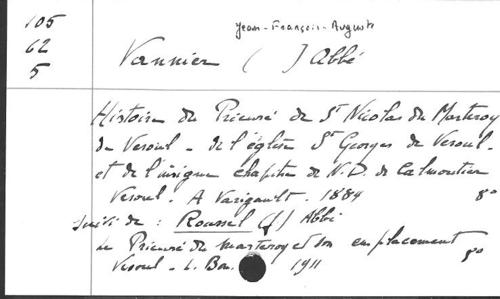 105
62
5
Jean-François-Auguste
Vannier ( ) Abbé
Histoire du Prieuré de St Nicolas du Marteroy
de Vesoul - de l'église St Georges de Vesoul -
et de l'insigne chapitre de N.D. de Calmoutier
Vesoul. A Vasigault. 1884 8°
suivi de : Roussel (J) Abbé
Le Prieuré du Marteroy et son emplacement
Vesoul - L. Bon. 1911 8°